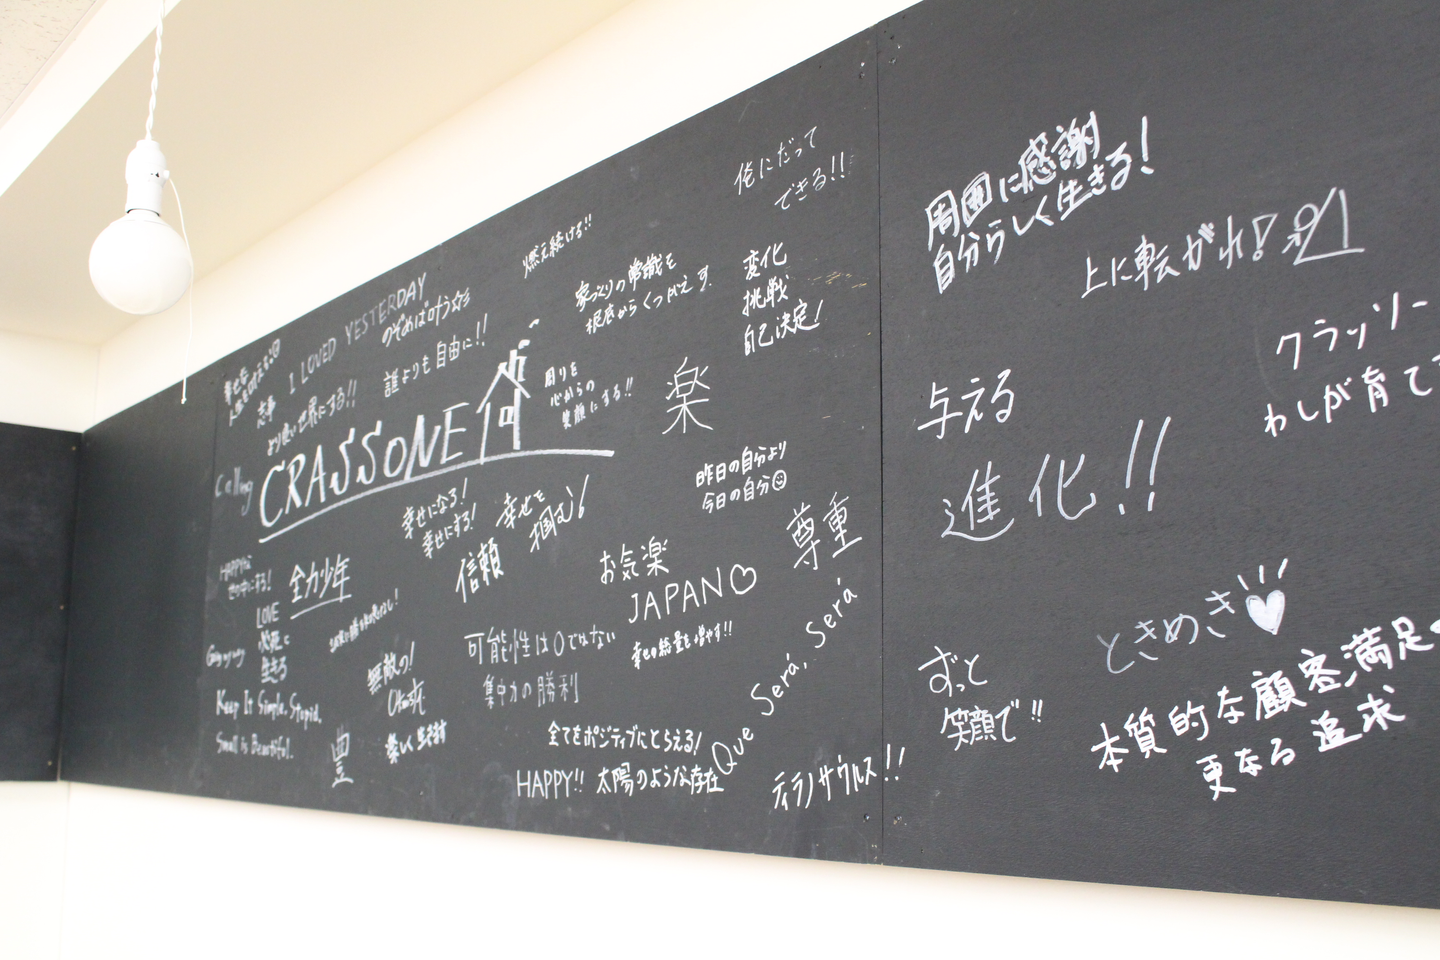 俺にだって
できる!!
燃え続けろ!!
家づくりの常識を
根底からくつがえす
変化
挑戦
自己決定!
I LOVED YESTERDAY
のぞめば叶う
誰よりも自由に!!
志事
より良い世界にする!!
幸せな
周りを
心からの
笑顔にする!!
楽
Calling
CRASSONE
昨日の自分より
今日の自分
幸せになる!
幸せにする!
幸せを
掴む!
信頼
尊重
お気楽
JAPAN♡
全力少年
HAPPYな
世の中にする!
LOVE
必死に
生きる
Going my way
可能性は0ではない
集中力の勝利
幸せの総量を増やす!!
Que Será, Será
無敵の!
楽しく生きます
Keep It Simple, Stupid.
Small is Beautiful.
豊
全てをポジティブにとらえる!
HAPPY!! 太陽のような存在
ティラノサウルス!!
周囲に感謝
自分らしく生きる!
上に転がれ!
クラッソー
わしが育て
与える
進化!!
ときめき
ずっと
笑顔で!!
本質的な顧客満足の
更なる追求